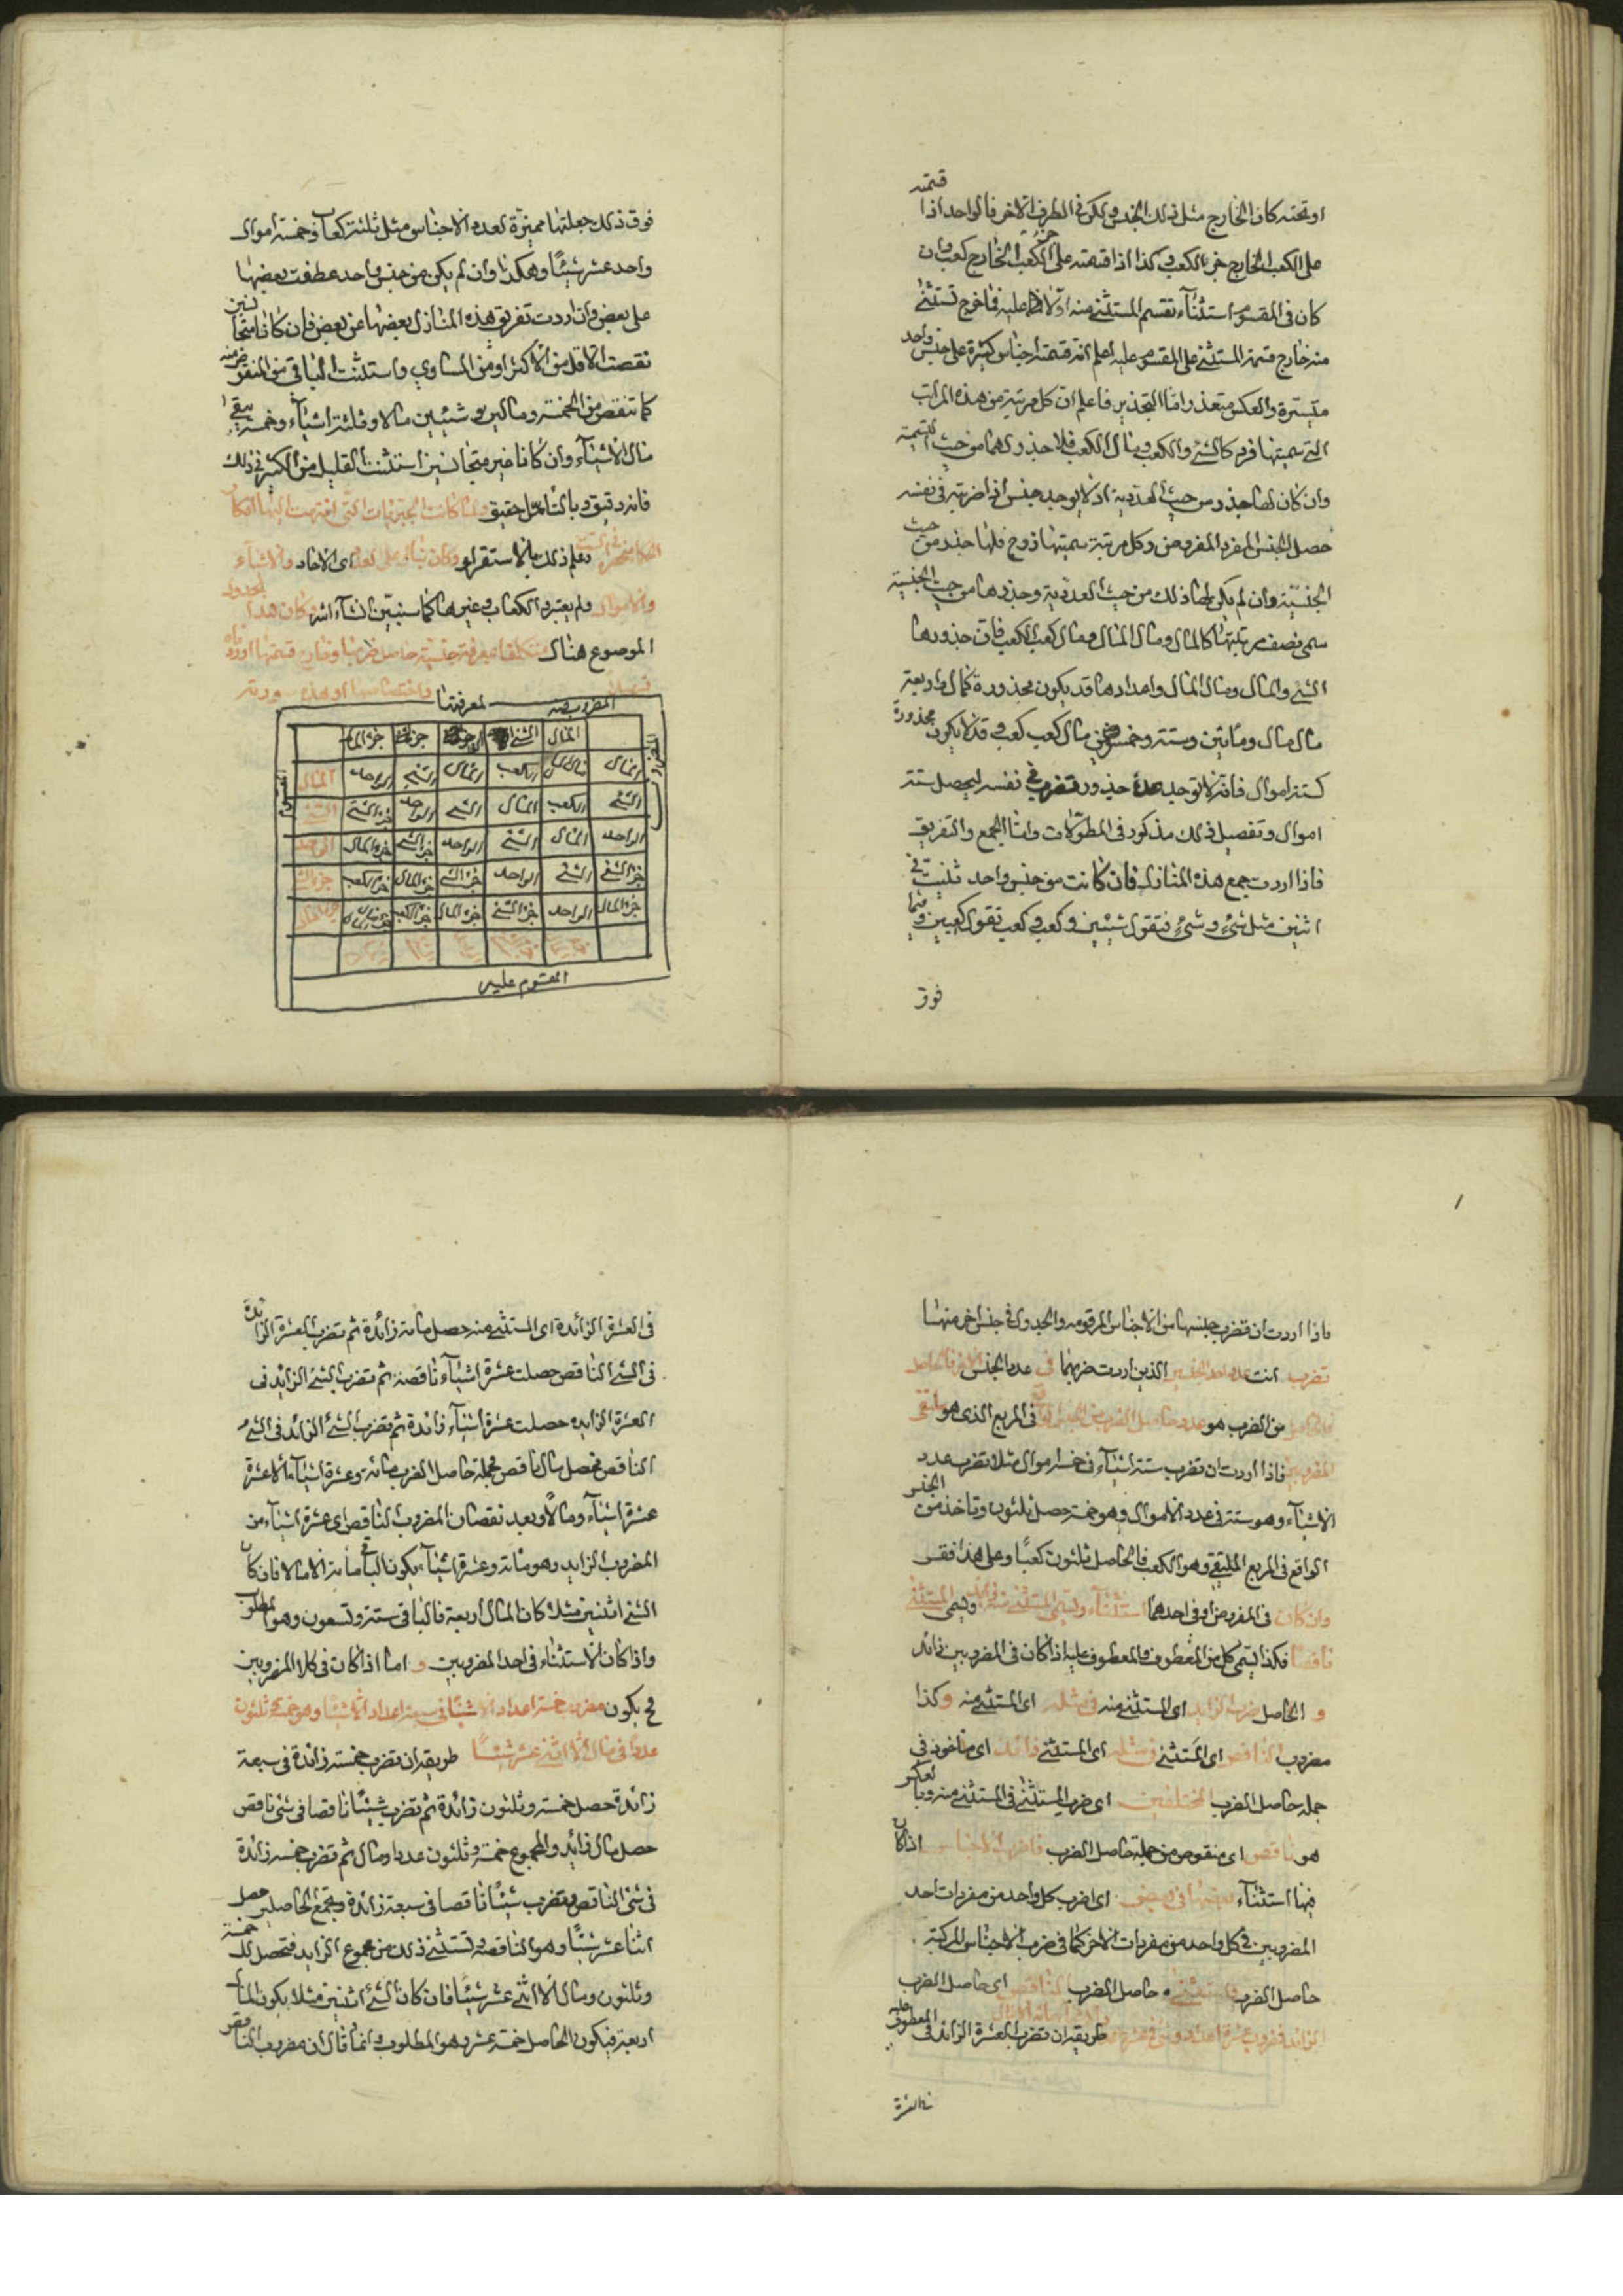 او تحته كان الخارج مثل ذلك الجنس ولكن في الطرف الاخر فالواحد اذا قسمته
على الكعب الخارج جزء الكعب وكذا اذا قسمته على جزء الكعب الخارج كعب وان
كان في المقسوم استثناء تقسم المستثنى منه اولا عليه فما خرج تستثنى
منه خارج قسمة المستثنى على المقسوم عليه اعلم ان قسمة اجناس كثيرة على جنس واحد
متيسرة والعكس متعذر واما التجذير فاعلم ان كل مرتبة من هذه المراتب
التي سميتها فرد كالشئ والكعب ومال الكعب فلا جذر لها من حيث التسمية
وان كان لها جذر من حيث العددية اذ لا يوجد جنس اذا ضربته في نفسه
حصل الجنس المفرد المفروض وكل مرتبة سميتها زوج فلها جذر من حيث
الجنسية وان لم يكن لها ذلك من حيث العددية وجذرها من حيث الجنسية
سمي نصف مرتبتها كالمال ومال المال ومال كعب الكعب فان جذورها
الشئ والمال ومال المال واعدادها قد يكون مجذورة كمال واربعة
مال مال ومايتين وستة وخمسين مال كعب كعب وقد لا يكون مجذورة
كستة اموال فانه لا يوجد عدد جذور تضرب في نفسه ليحصل ستة
اموال وتفصيل ذلك مذكور في المطولات واما الجمع والتفريق
فاذا اردت جمع هذه المنازل فان كانت من جنس واحد ثنيت في
اثنين مثل شئ وشئ فتقول شيئين وكعب وكعب تقول كعبين وفيما
فوق
فوق ذلك جعلتها مميزة لعدد الاجناس مثل ثلثة كعاب وخمسة اموال
واحد عشر شيئا وهكذا وان لم يكن من جنس واحد عطفت بعضها
على بعض وان اردت تفريق هذه المنازل بعضها عن بعض فان كانا متجانسين
نقصت الاقل من الاكثر او من المساوي واستثنيت الباقي من المنقوص منه
كما تنقص من الخمسة ومالين وشيئين مالا وثلثة اشياء وخمسة يبقى
مال الا شياء وان كانا غير متجانسين استثنيت القليل من الكثير في ذلك
فانه دقيق وبالتأمل حقيق ولما كانت الجبريات التي انتهت اليها افكار
الحكما منحصرة في الست وعلم ذلك بالاستقراء وكان بناؤه على العدد اي الآحاد والاشياء
والاموال ولم يعتبر الكعاب وغيرها كما سنبين ان شاء الله كان هذا الجدول
الموضوع هناك متكفلا بمعرفة جنسية حاصل ضربها وخارج قسمتها اوردناه
تسهيلا لمعرفتها واختصارها وهذه صورته
المضروب فيه
المال الشئ الواحد جزء الشئ جزء المال
المال مال المال الكعب المال الشئ الواحد المال
الشئ الكعب المال الشئ الواحد جزء الشئ الشئ
الواحد المال الشئ الواحد جزء الشئ جزء المال الواحد
جزء الشئ الشئ الواحد جزء الشئ جزء المال جزء الكعب جزء الشئ
جزء المال الواحد جزء الشئ جزء المال جزء الكعب جزء مال المال جزء المال
المضروب
المقسوم
المقسوم عليه
فاذا اردت ان تضرب جنسا من الاجناس المرقومة والجدول في جنس اخر منها
تضرب انت عدد احد الجنسين الذين اردت ضربهما في عدد الجنس الاخر فالحاصل
من الضرب هو عدد حاصل الضرب من الجنس الواقع في المربع الذي هو ملتقى
المضروبين فاذا اردت ان تضرب ستة اشياء في خمسة اموال مثلا تضرب عدد
الاشياء وهو ستة في عدد الاموال وهو خمسة حصل ثلثون وتاخذ من الجنس
الواقع في المربع الملتقى وهو الكعب فالحاصل ثلثون كعبا وعلى هذا فقس
وان كان في المضروبين او في احدهما استثناء ويسمى المستثنى منه زائدا ويسمى المستثنى
ناقصا فكذا يسمى كل من المعطوف والمعطوف عليه اذا كان في المضروبين زائد
و الحاصل ضرب الزايد اي المستثنى منه في مثله اي المستثنى منه وكذا
مضروب الناقص اي المستثنى في مثله اي المستثنى زائد اي ماخوذ في
جملة حاصل الضرب المختلفين اي ضرب المستثنى في المستثنى منه وبالعكس
هو ناقص اي منقوص من جملة حاصل الضرب فاضرب الاجناس اذا كان
فيها استثناء بعضها في بعض اي اضرب كل واحد من مفردات احد
المضروبين في كل واحد من مفردات الاخر كما في ضرب الاجناس المركبة
حاصل الضرب فاستثنى حاصل الضرب الناقص اي حاصل الضرب
الزائد فمضروب عشرة اعداد وشئ في عشرة طريقه ان تضرب العشرة الزائد في المعطوف عليه
في العشرة
في العشرة الزائدة اي المستثنى منه حصل مائة زائدة ثم تضرب العشرة الزائدة
في الشئ الناقص حصلت عشرة اشياء ناقصة ثم تضرب الشئ الزايد في
العشرة الزايده حصلت عشرة اشياء زائدة ثم تضرب الشئ الزائد في الشئ
الناقص تحصل مال ناقص فجملة حاصل الضرب مائة وعشرة اشياء الا عشرة
عشرة اشياء ومالا وبعد نقصان المضروب الناقص اي عشرة اشياء من
المضروب الزايد وهو مائة وعشرة اشياء يكون الباقي مائة الا مالا فان كان
الشئ اثنين مثلا كان المال اربعة فالباقي ستة وتسعون وهو المطلوب
واذا كان الاستثناء في احد المضروبين و اما اذا كان في كلا المضروبين
فح يكون مضروب خمسة اعداد الا شيئا في سبعة اعداد الا شيئا وهو خمسة وثلثون
عددا ومال الا اثنى عشر شيئا طريقه ان تضرب خمسة زائدة في سبعة
زائدة حصل خمسة وثلثون زائدة ثم تضرب شيئا ناقصا في شئ ناقص
حصل مال زائد والمجموع خمسة وثلثون عددا ومال ثم تضرب خمسة زائدة
في شئ الناقص وتضرب شيئا ناقصا في سبعة زائدة وتجمع الحاصلين حصل
اثنا عشر شيئا وهو الناقصة وتستثنى ذلك من مجموع الزايد فتحصل لك خمسة
وثلثون ومال الا اثنى عشر شيئا فان كان الشئ اثنين مثلا يكون المال
اربعة فيكون الحاصل خمسة عشر وهو المطلوب وانما قال ان مضروب الناقص